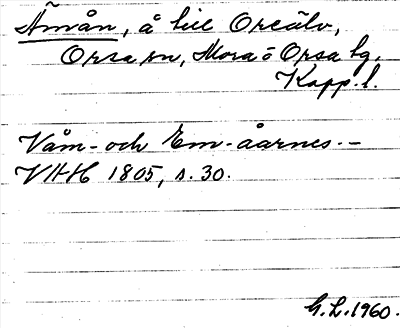 Ämån, å till Oreälv,
Orsa sn, Mora o Orsa tg,
Kopp. l.
Våm- och Em-åarnes.-
VHH 1805, s. 30.
G.L. 1960.